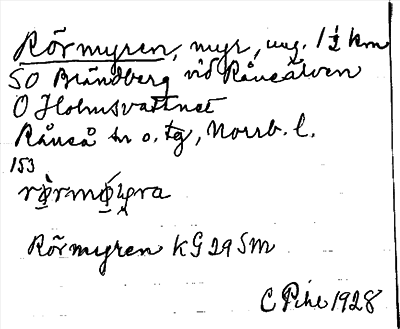 Rörmyren, myr, ung. 1½ km
SO Brändberg vid Råneälven
O Holmsvattnet
Råneå sn o. tg, Norrb. l.
153
Rörmyren KG 29 SM
C Pihl 1928